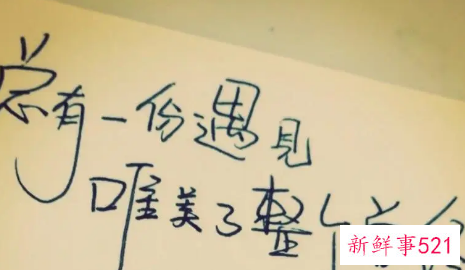 总有一份遇见
唯美了整个
新鲜事521